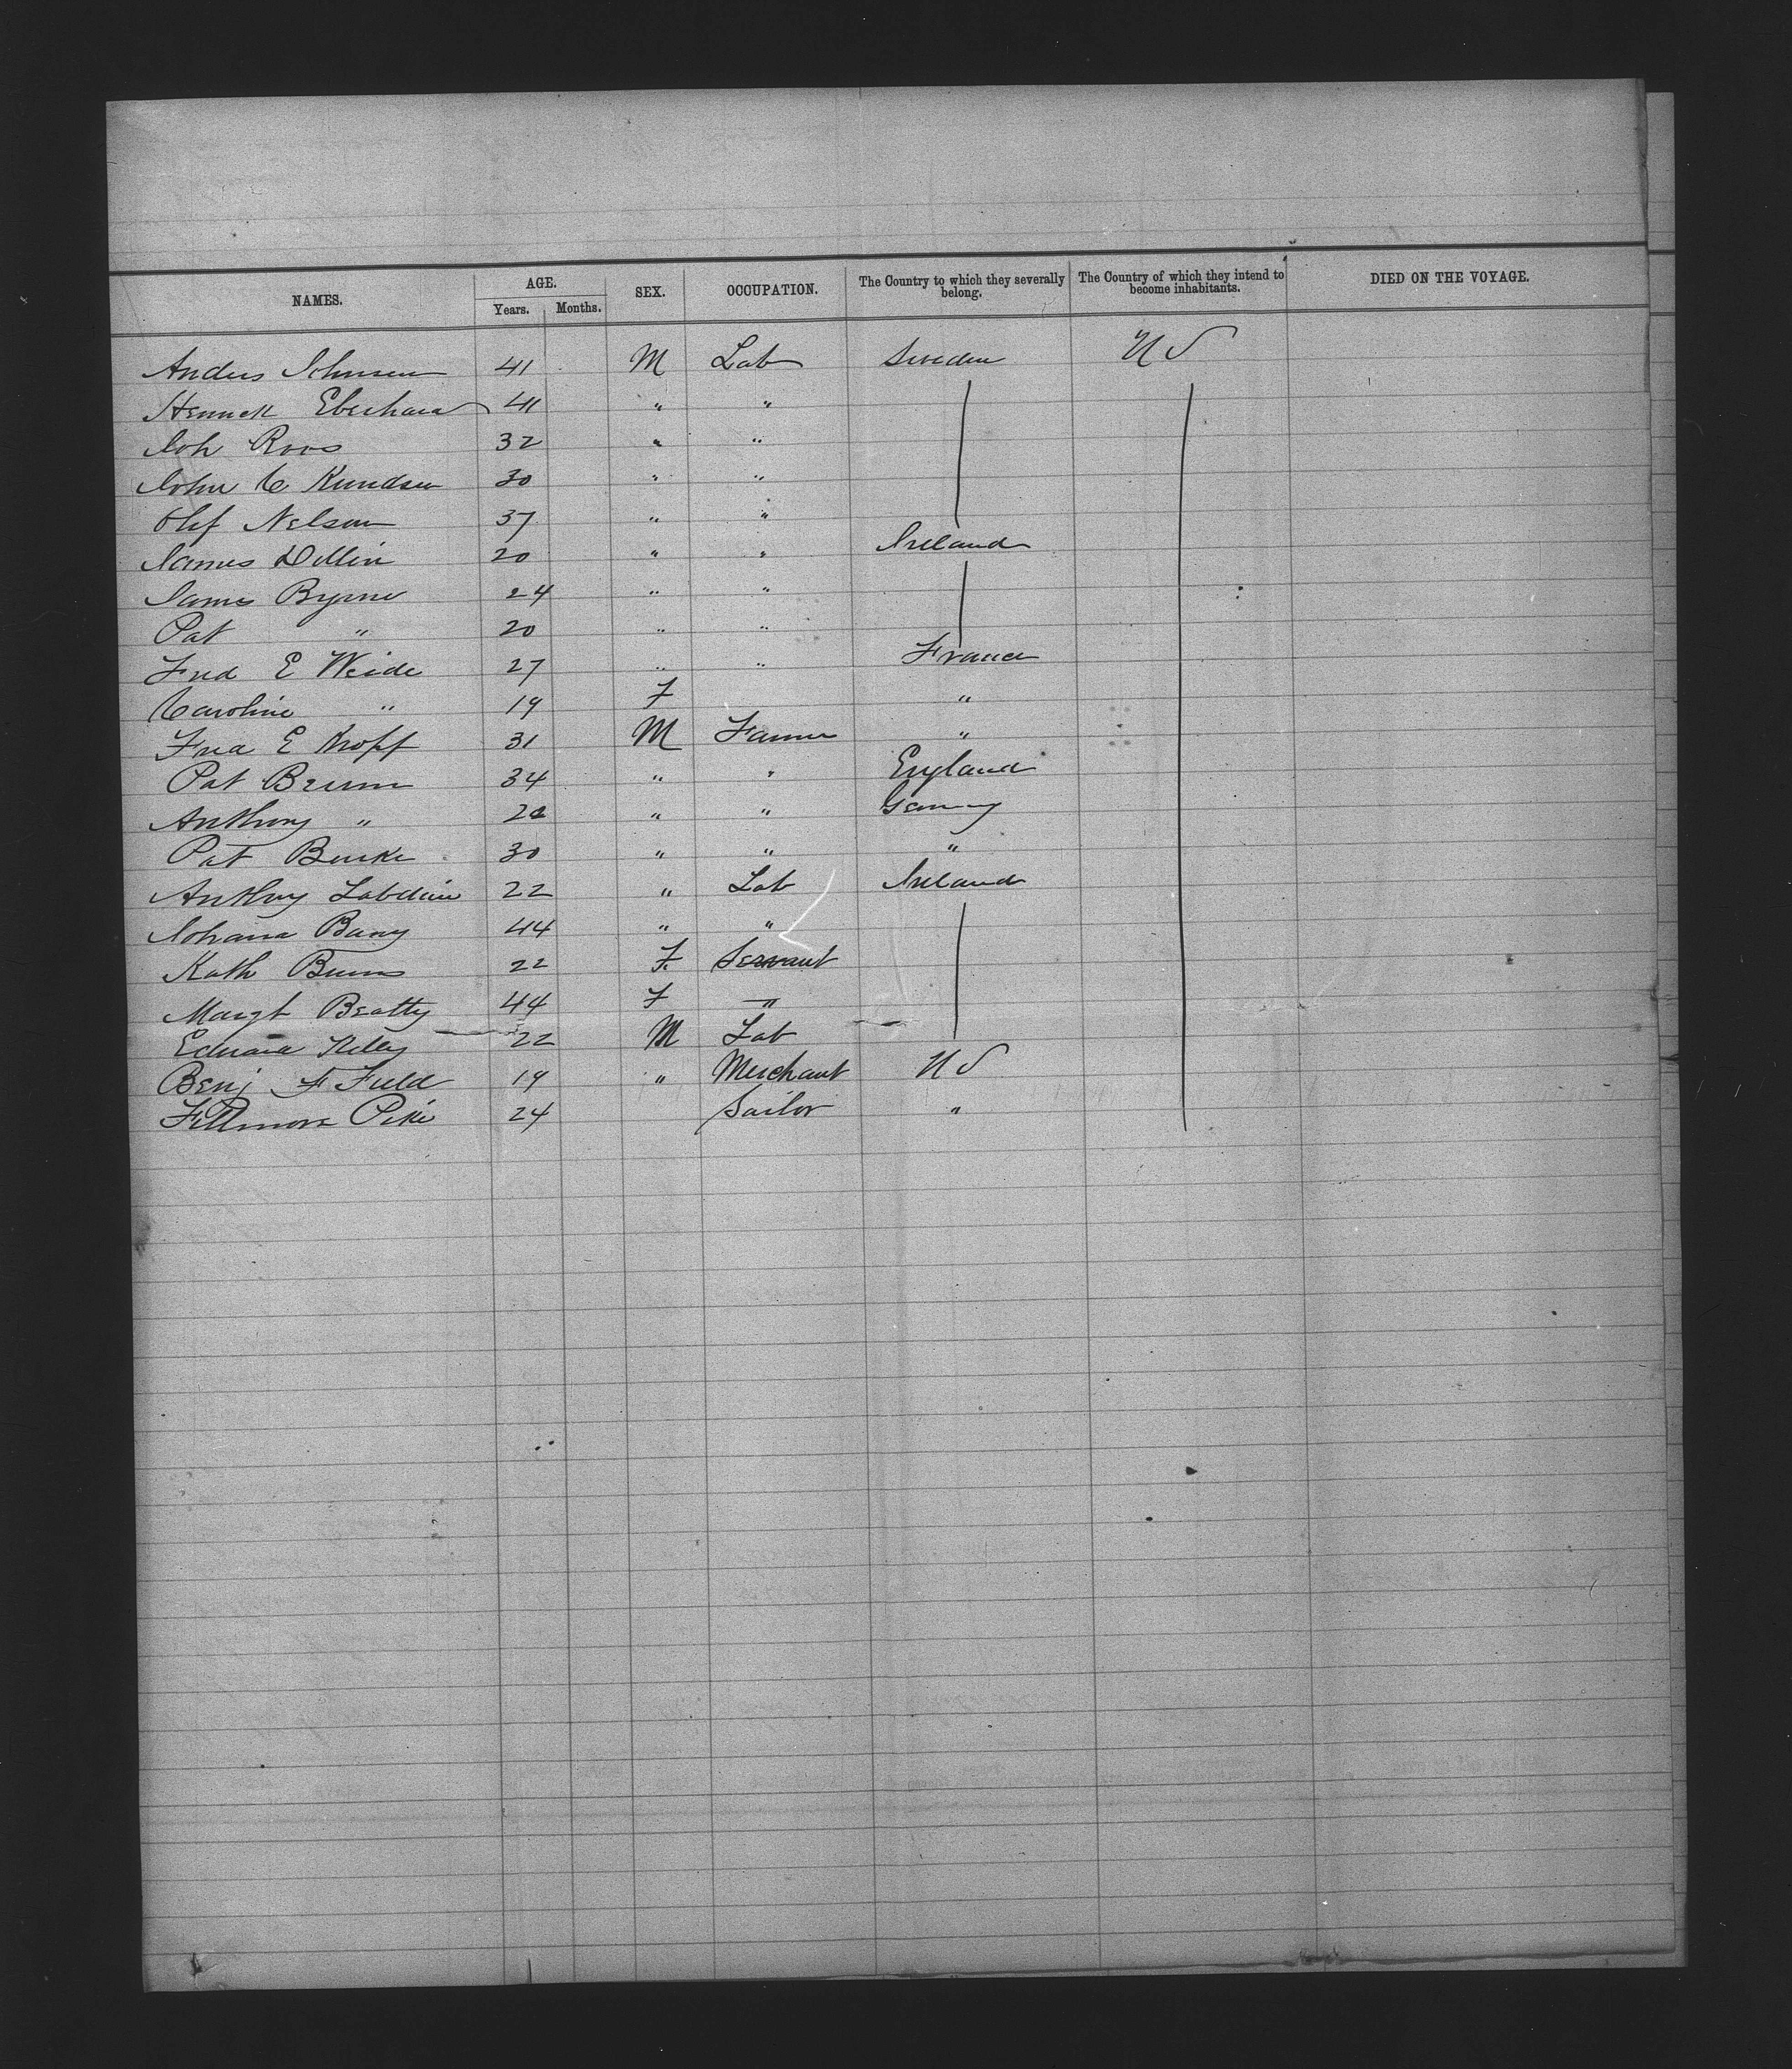 NAMES. AGE. Years. Months. SEX. OCCUPATION. The Country to which they severally belong. The Country of which they intend to become inhabitants. DIED ON THE VOYAGE.
Anders Johnsen 41 M Lab Sweden U S
Eberhard 41 " "
Joh Roos 32 " "
John C Knudsen 30 " "
Olif Nelson 37 " "
James Dillin 20 " " Ireland
James Byrne 24 " "
Pat " 20 " "
Fred E Weide 27 " " France
Caroline " 19 F "
Fred E Kropf 31 M Farmer "
Pat 34 " " England
Anthony " " " Germany
Pat Burke 30 " " "
Anthony 22 " Lab Ireland
Johana 44 " "
Kath Burns 22 F. Servant
Margt Beatty 44 F "
Edward 22 M Lab
Benj F Field 19 " Merchant U S
Fillmore Pike 24 Sailor "